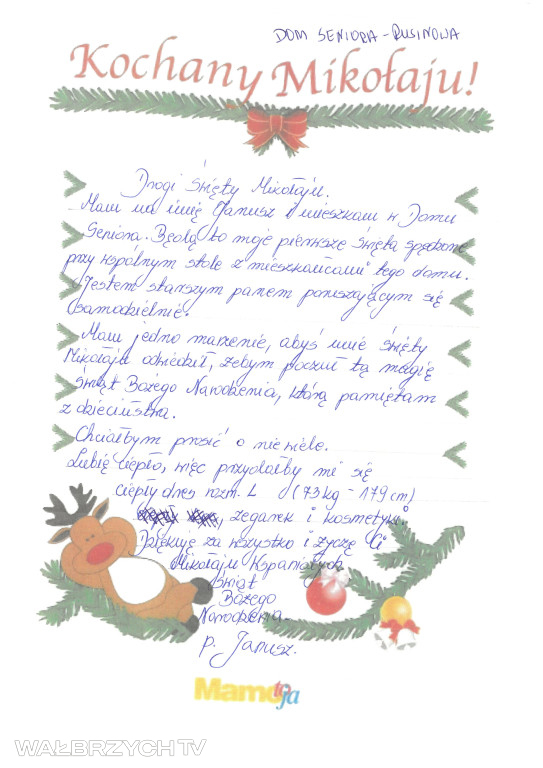 DOM SENIORA - RUSINOWA
Kochany Mikołaju!
Drogi Święty Mikołaju.
Mam na imię Janusz i mieszkam w Domu
Seniora. Będą to moje pierwsze święta spędzone
przy wspólnym stole z mieszkańcami tego domu.
Jestem starszym panem poruszającym się
samodzielnie.
Mam jedno marzenie, abyś mnie Święty
Mikołaju odwiedził, żebym poczuł tą magię
Świąt Bożego Narodzenia, którą pamiętam
z dzieciństwa.
Chciałbym prosić o niewiele.
Lubię ciepło, więc przydałby mi się
ciepły dres rozm. L (73kg - 179 cm)
zegarek i kosmetyki.
Dziękuję za wszystko i życzę Ci
Mikołaju Wspaniałych
Świąt
Bożego
Narodzenia.
p. Janusz.
Mamo to ja
WAŁBRZYCH TV